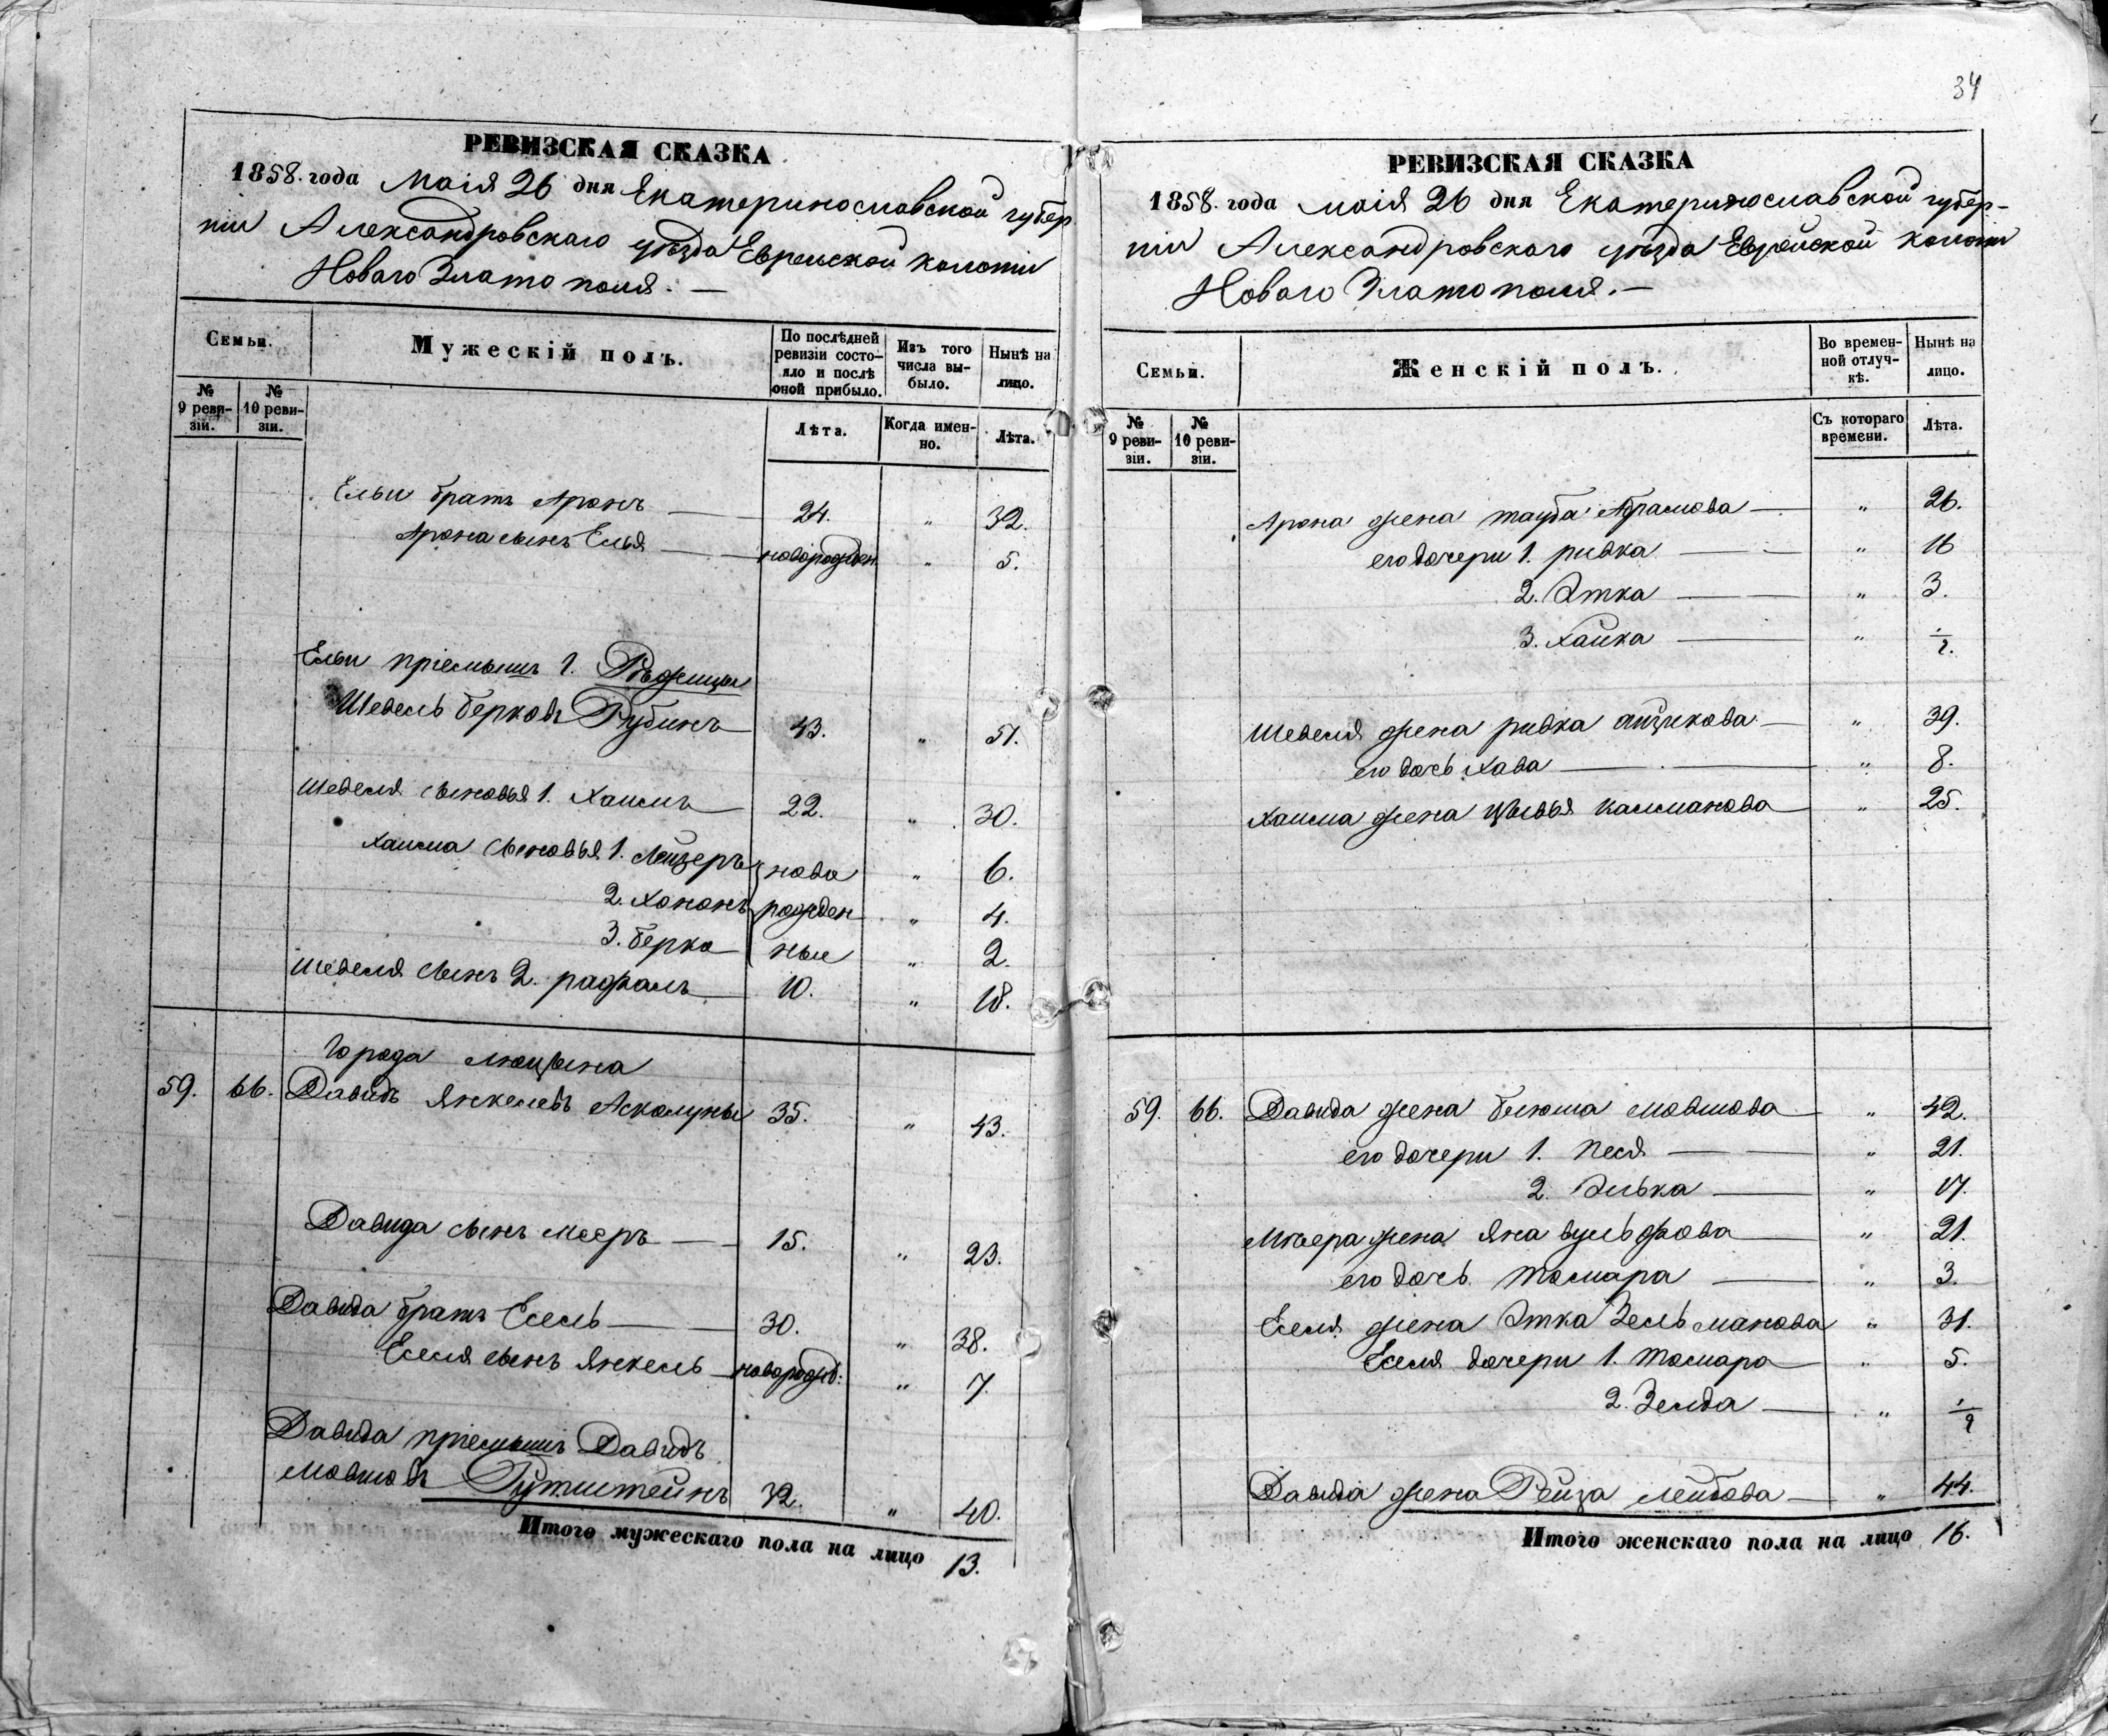 РЕВИЗСКАЯ СКАЗКА
1858. года Маія 26 дня Екатеринославской губер
ніи Александровскаго уѣзда Еврейской колоніи
Новаго Злато поля. —
Семьи.
Мужескій полъ.
По послѣдней ревизіи состо-яло и послѣ оной прибыло.
Изъ того числа вы-было.
Нынѣ на лицо.
№ 9 реви-зіи.
№ 10 реви-зіи.
Лѣта.
Когда имен-но.
Лѣта.
Ельи братъ Аронъ — 24. " 32.
Арона сынъ Елья — новорожден. " 5.
Ельи пріемышъ 1. Рѣжицы
Шевель Берковъ Рубинъ 43. " 51.
Шевеля сыновья 1. Хаимъ 22. " 30.
Хаима сыновья 1. Лейзеръ ново " 6.
2. Хононъ рожден " 4.
3. Берко ные " 2.
Шевеля сынъ 2. Рафаль 10. " 18.
Города Люцына
59. 66. Давидъ Янкелевъ Асколуны 35. " 43.
Давида сынъ Мееръ — 15. " 23.
Давида братъ Есель — 30. " 38.
Еселя сынъ Янкель новорожд: " 7.
Давида пріемышъ Давидъ
Мовшовъ Рутштейнъ 32. " 40.
Итого мужескаго пола на лицо 13.
34
РЕВИЗСКАЯ СКАЗКА
1858. года маія 26 дня Екатеринославской губер-
ніи Александровскаго уѣзда Еврейской колоніи
Новаго Злато поля. —
Семьи.
Женскій полъ.
Во времен-ной отлуч-кѣ.
Нынѣ на лицо.
№ 9 реви-зіи.
№ 10 реви-зіи.
Съ котораго времени.
Лѣта.
Арона жена тауба Абрамова — " 26.
его дочери 1. ривка — " 16
2. Этка — " 3.
3. Хайка — " 1/2.
Шевеля жена ривка айзикова — " 39.
его дочь Хава — " 8.
Хаима жена Цывья Калманова " 25.
59. 66. Давида жена Блюма мовшова — " 42.
его дочери 1. Песя — " 21.
2. Элька — " 17.
Меера жена яна вульфова " 21.
его дочь Томара — " 3.
Еселя жена Этка Зельманова " 31.
Еселя дочери 1. Томара — " 5.
2. Зелда — " 1/2
Давида жена Рейза лейбова — " 44.
Итого женскаго пола на лицо 16.